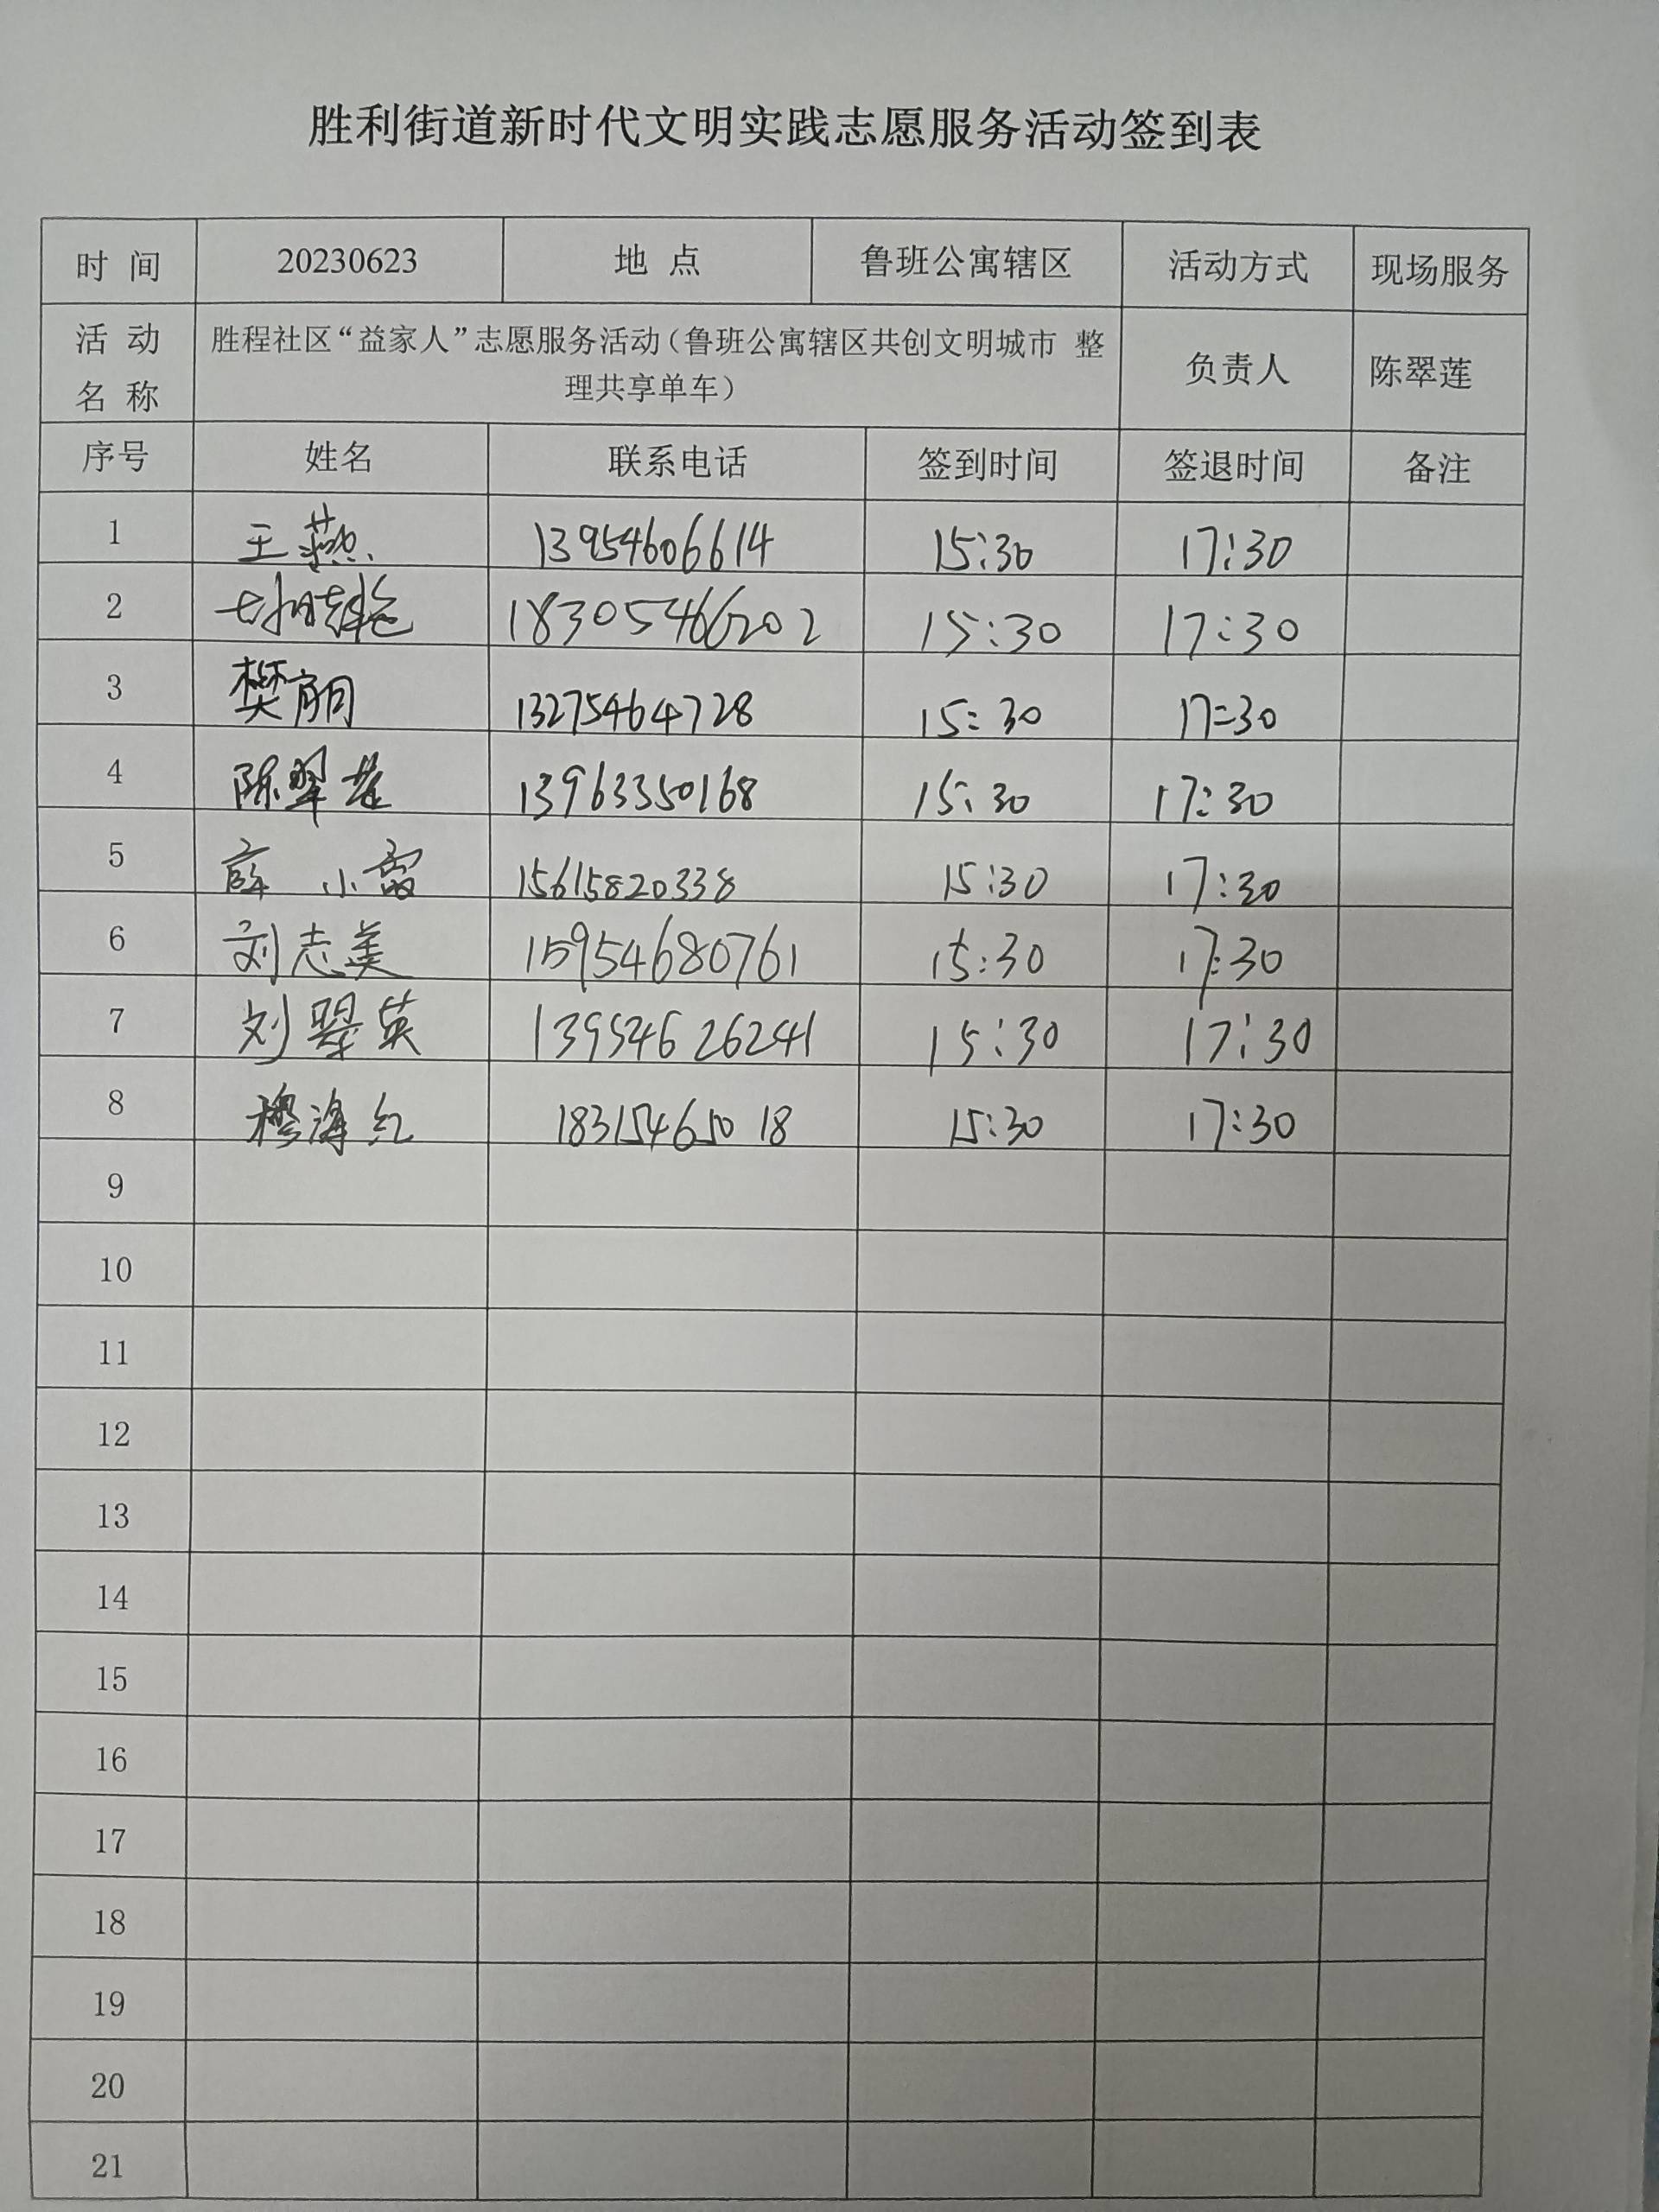 胜利街道新时代文明实践志愿服务活动签到表
时 间 20230623 地 点 鲁班公寓辖区 活动方式 现场服务
活 动 名 称 胜程社区“益家人”志愿服务活动（鲁班公寓辖区共创文明城市 整
理共享单车） 负责人 陈翠莲
序号 姓名 联系电话 签到时间 签退时间 备注
1 王燕 13954606614 15:30 17:30
2 18305466202 15:30 17:30
3 樊 13275464728 15:30 17:30
4 陈翠莲 13963350168 15:30 17:30
5 薛小 15615820338 15:30 17:30
6 刘志美 15954680761 15:30 17:30
7 刘翠英 13954626241 15:30 17:30
8 穆海红 18315465018 15:30 17:30
9
10
11
12
13
14
15
16
17
18
19
20
21